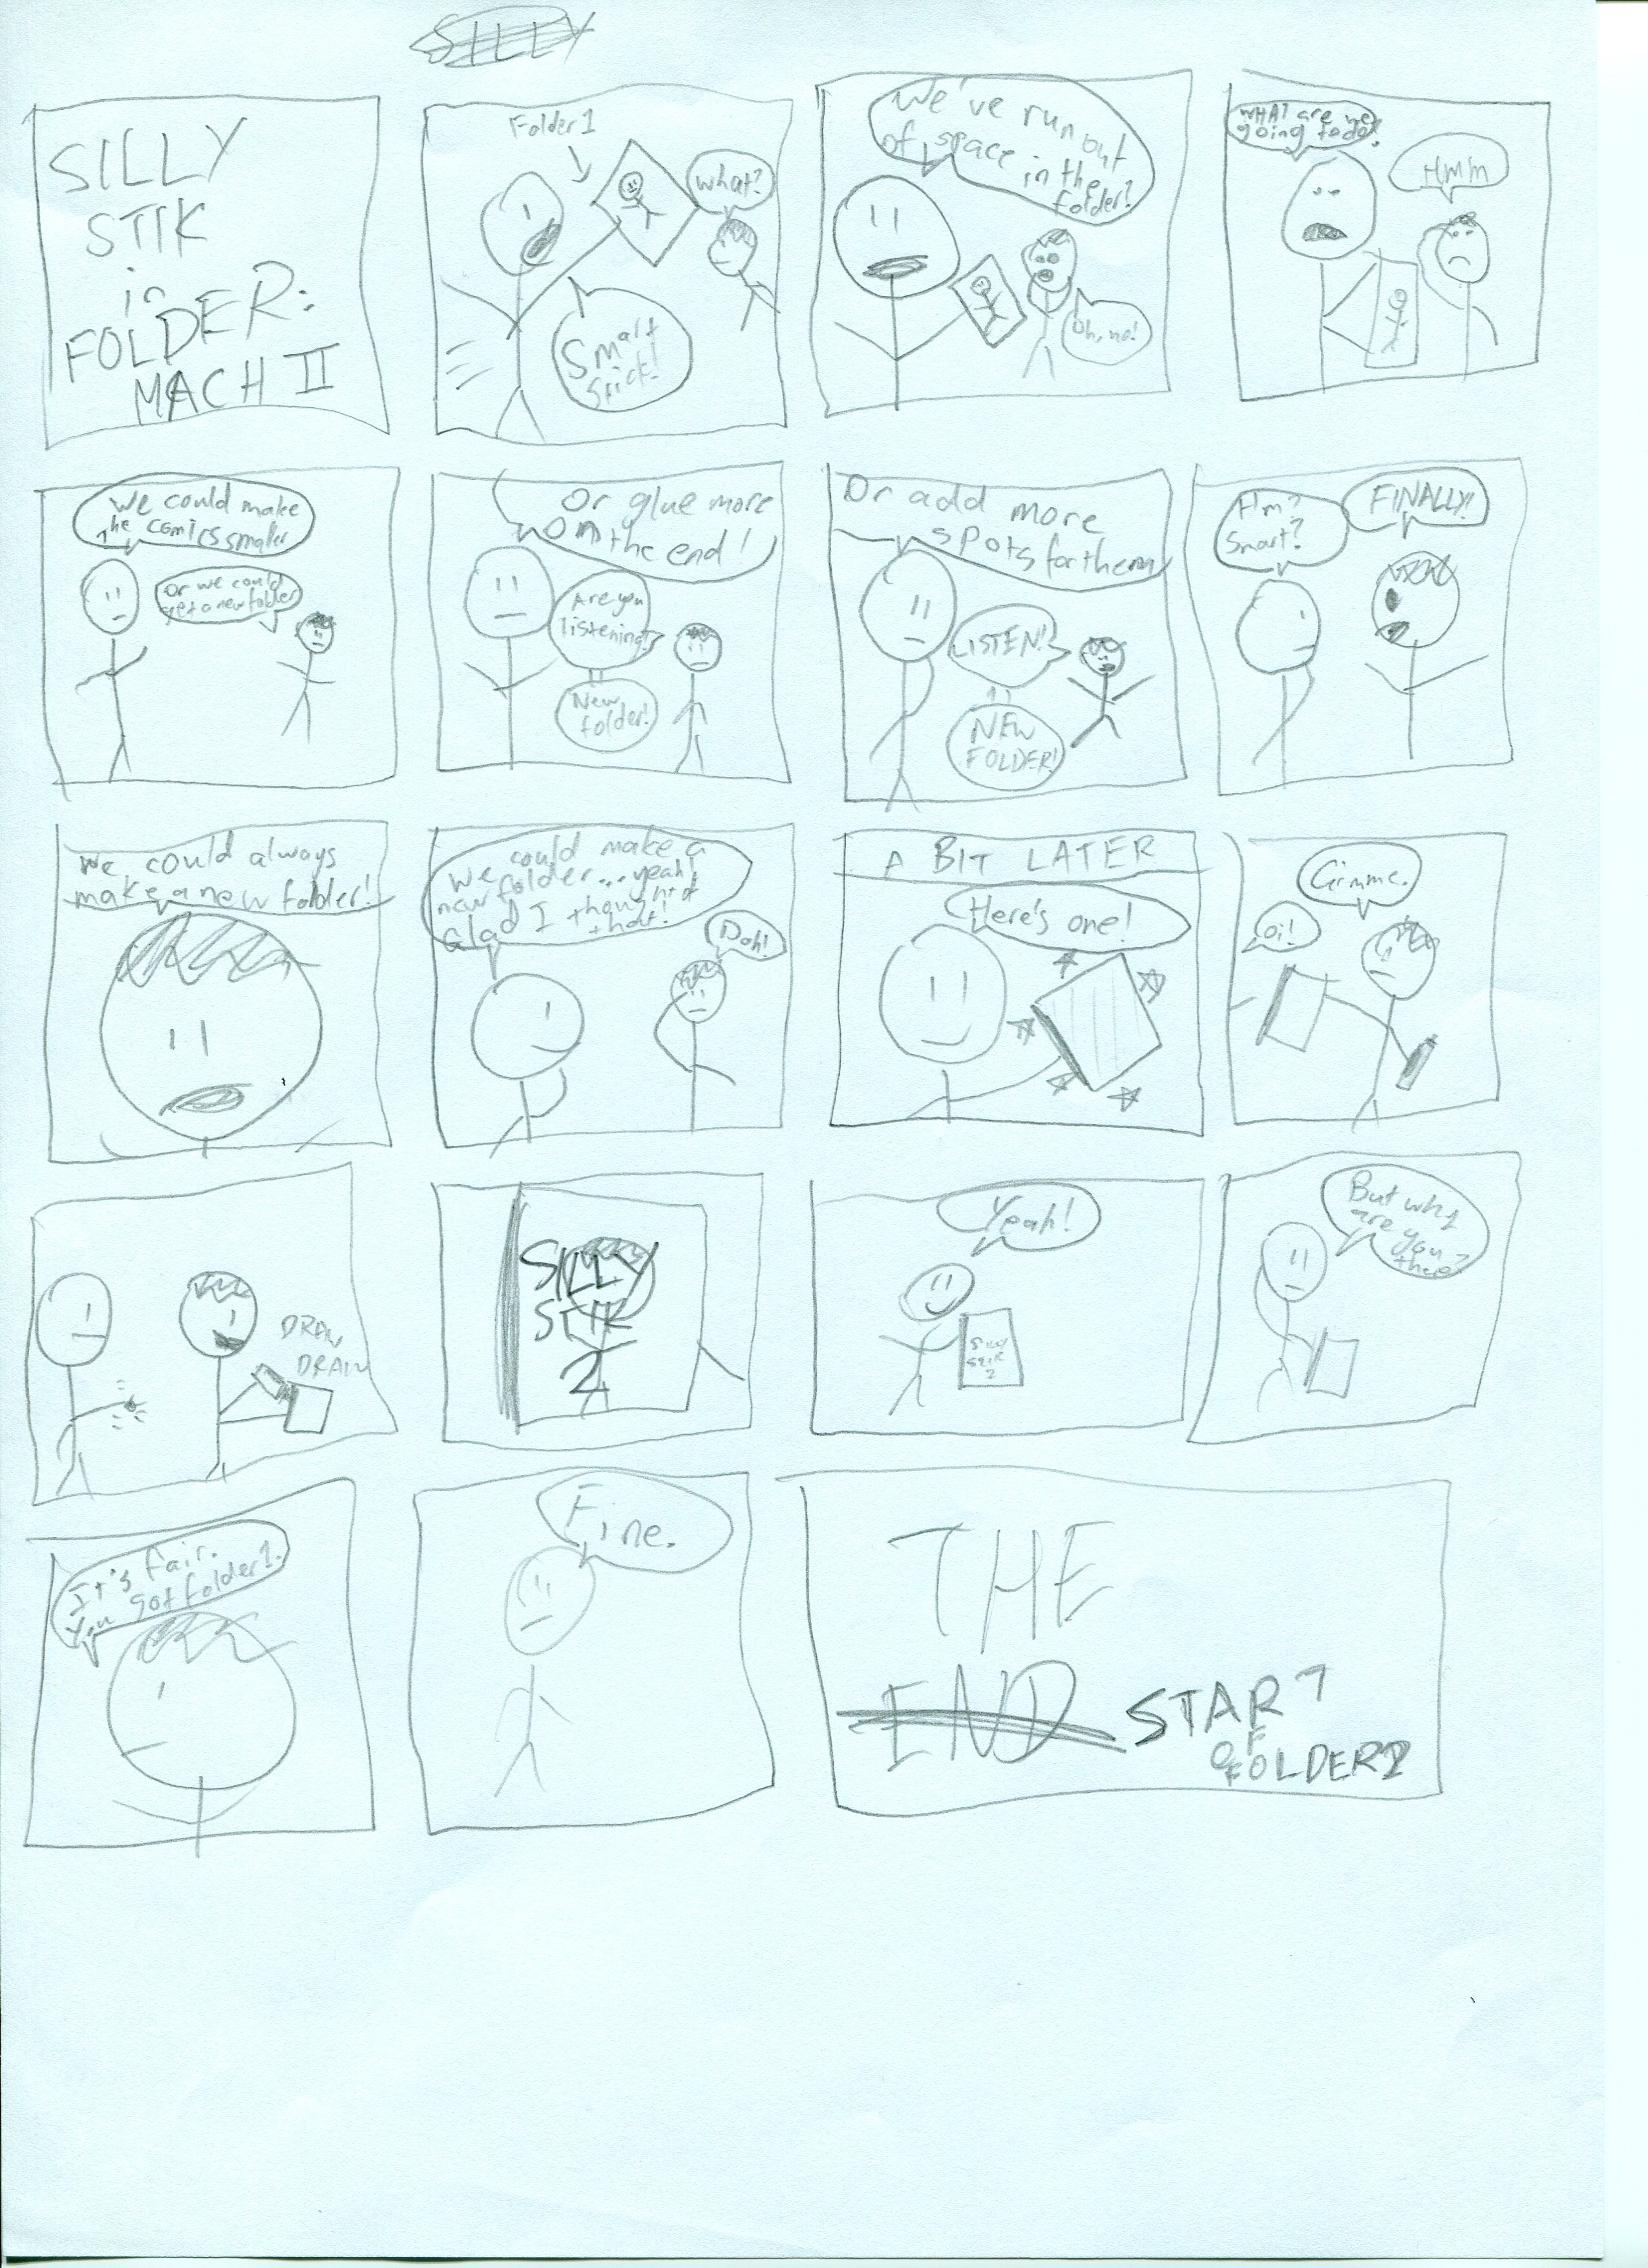 SILLY
SILLY
STIK
in
FOLDER:
MACH II
Folder 1
what?
Smart
Stick!
We've run out
of space
in the
folder!
Oh, no!
WHAT are we
going to do?
Hmm
We could make
the comics smaller
Or we could
get a new folder
Or glue more
on the end!
Are you
listening?
New
folder!
Or add more
spots for them
LISTEN!
NEW
FOLDER!
Hm?
Smart?
FINALLY!
We could always
make a new folder!
We could make a
new folder... yeah!
Glad I thought of
that!
Doh!
A BIT LATER
Here's one!
Gimme.
Oi!
DRAW
DRAW
SILLY
STIK
2
Yeah!
SILLY
STIK
2
But why
are you
there?
It's fair.
You got folder 1.
Fine.
THE
END START
OF
FOLDER 2